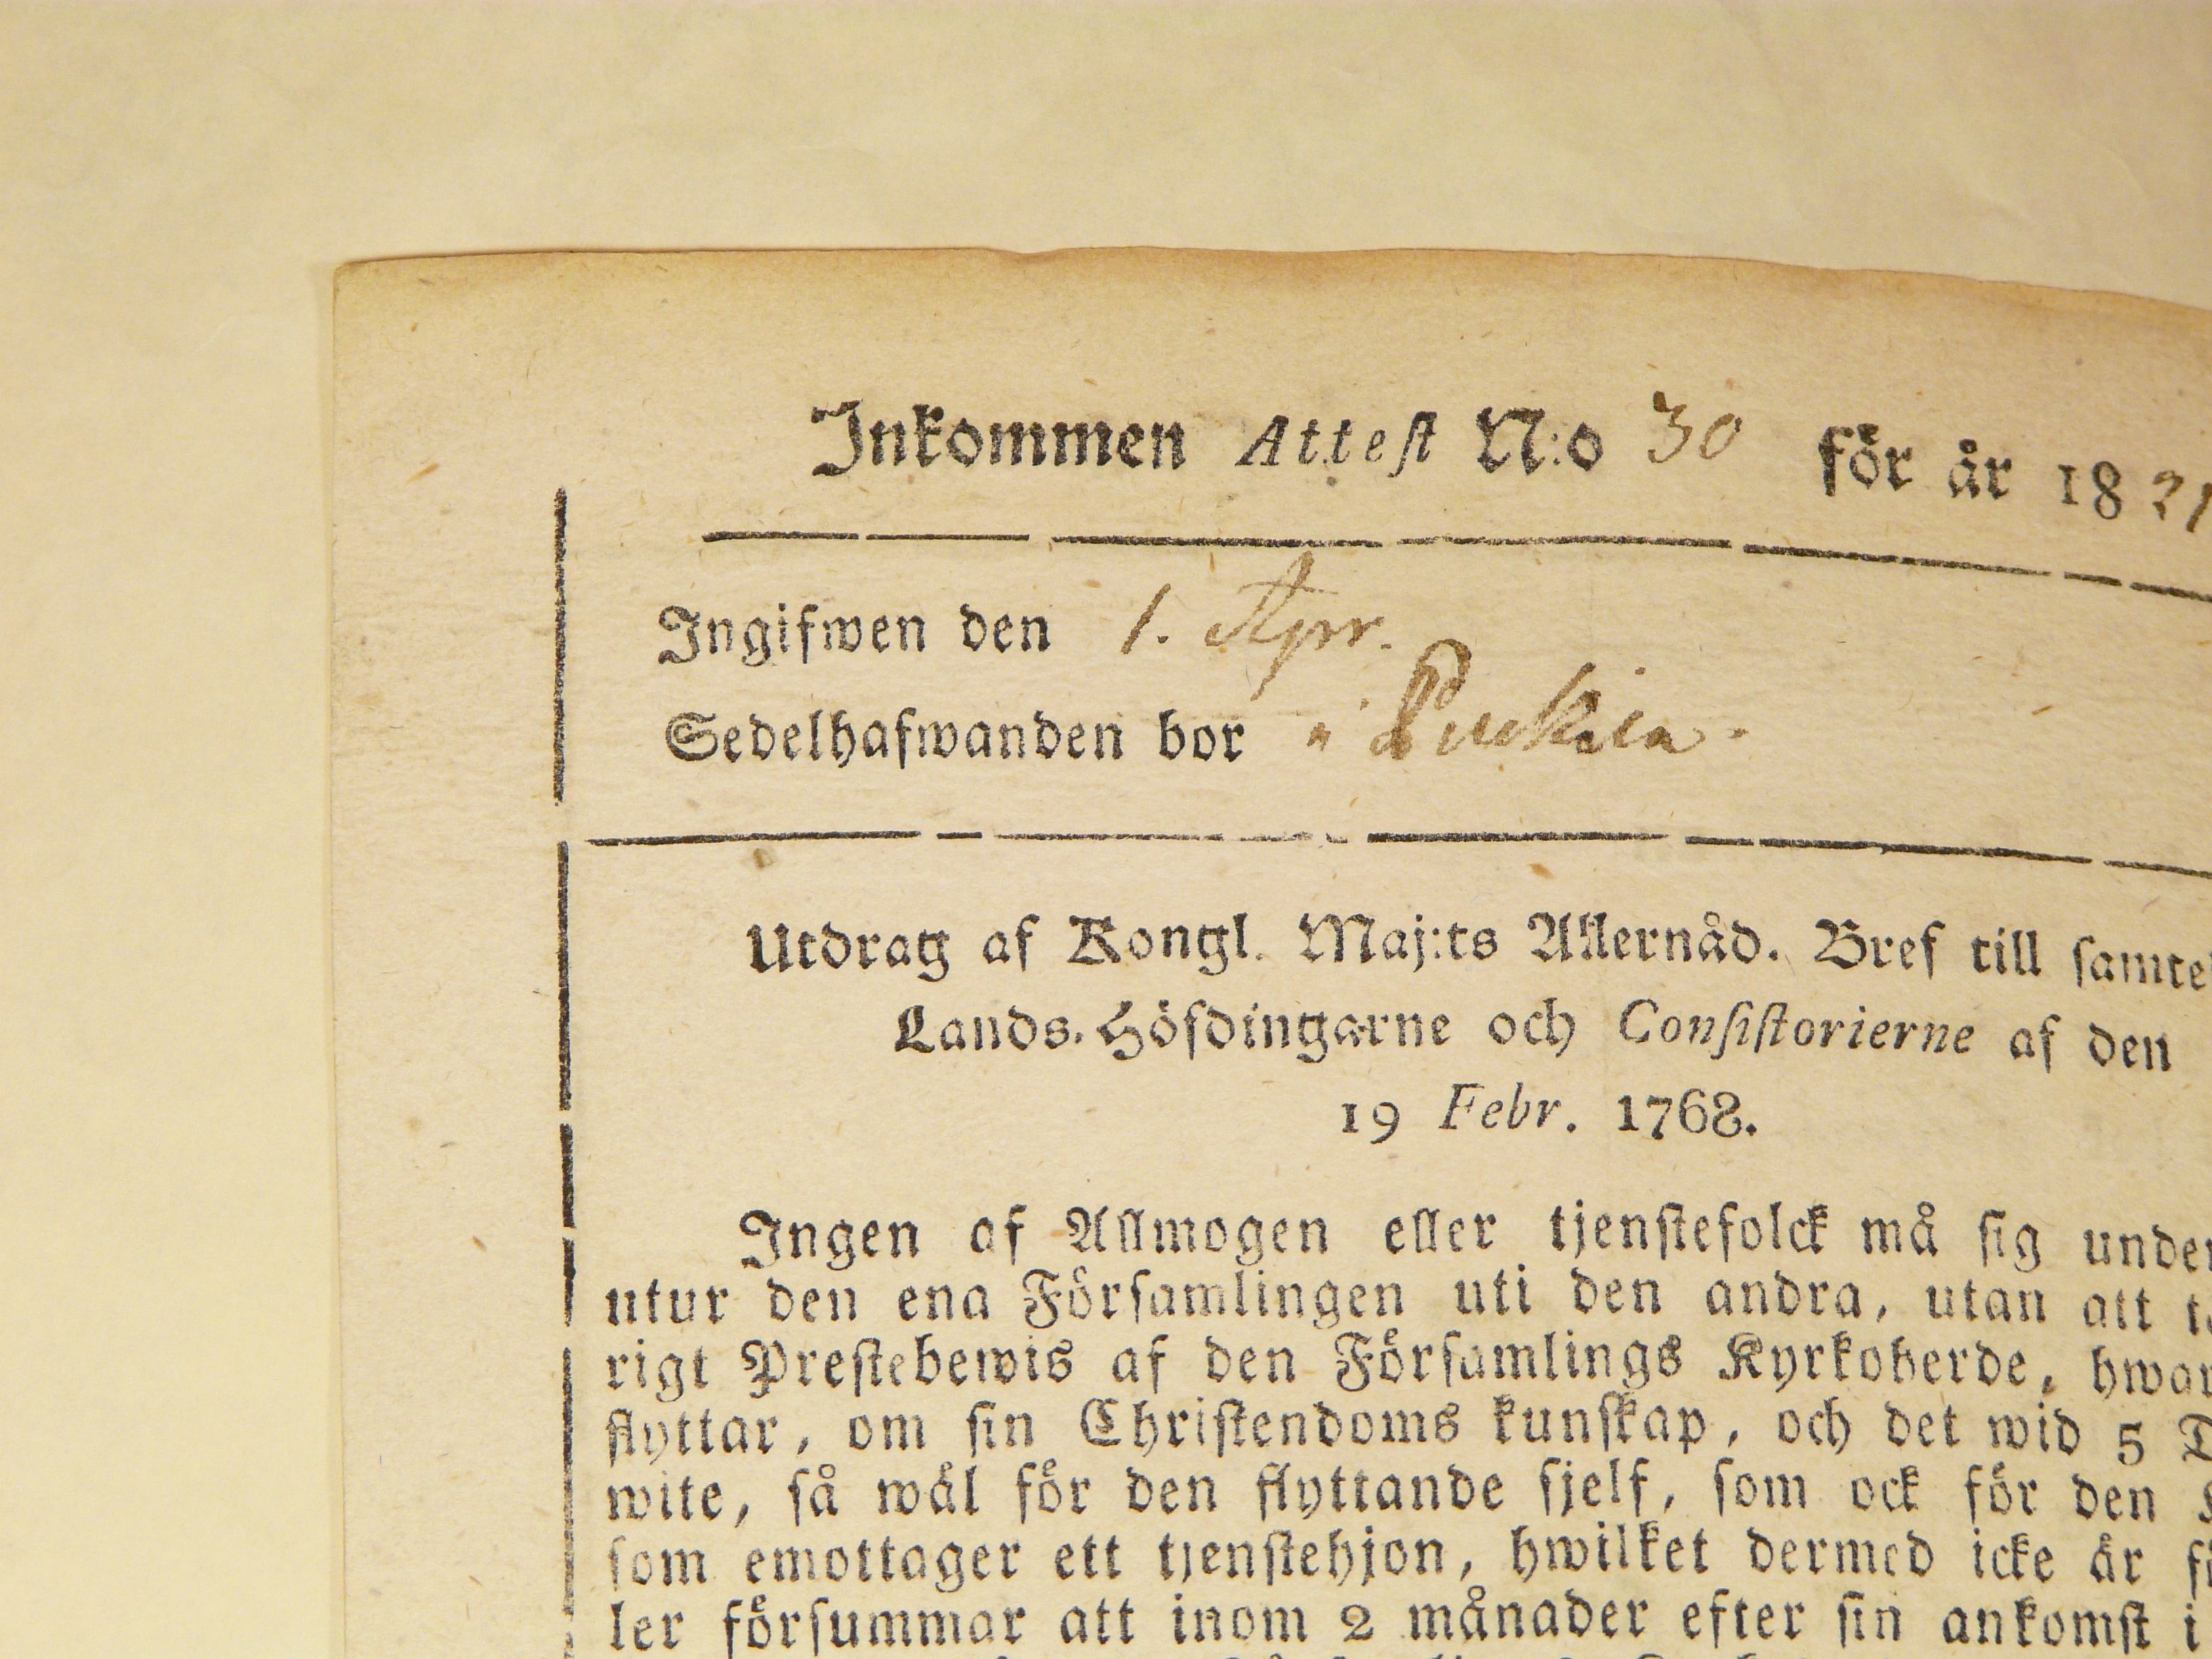 Inkommen Attest N:o 30 för år 1821
Ingifwen den 1. Apr.
Sedelhafwanden bor i Puckila.
Utdrag af Kongl. Maj:ts Allernåd. Bref till samte
Lands-Höfdingarne och Consistorierne af den
19 Febr. 1768.
Ingen af Allmogen eller tjenstefolck må sig under
utur den ena Församlingen uti den andra, utan att t
rigt Prestebewis af den Församlings Kyrkoherde, hwar
flyttar, om sin Christendoms kunskap, och det wid 5 D
wite, så wäl för den flyttande sjelf, som ock för den
som emottager ett tjenstehjon, hwilket dermed icke är f
ler försummar att inom 2 månader efter sin ankomst i